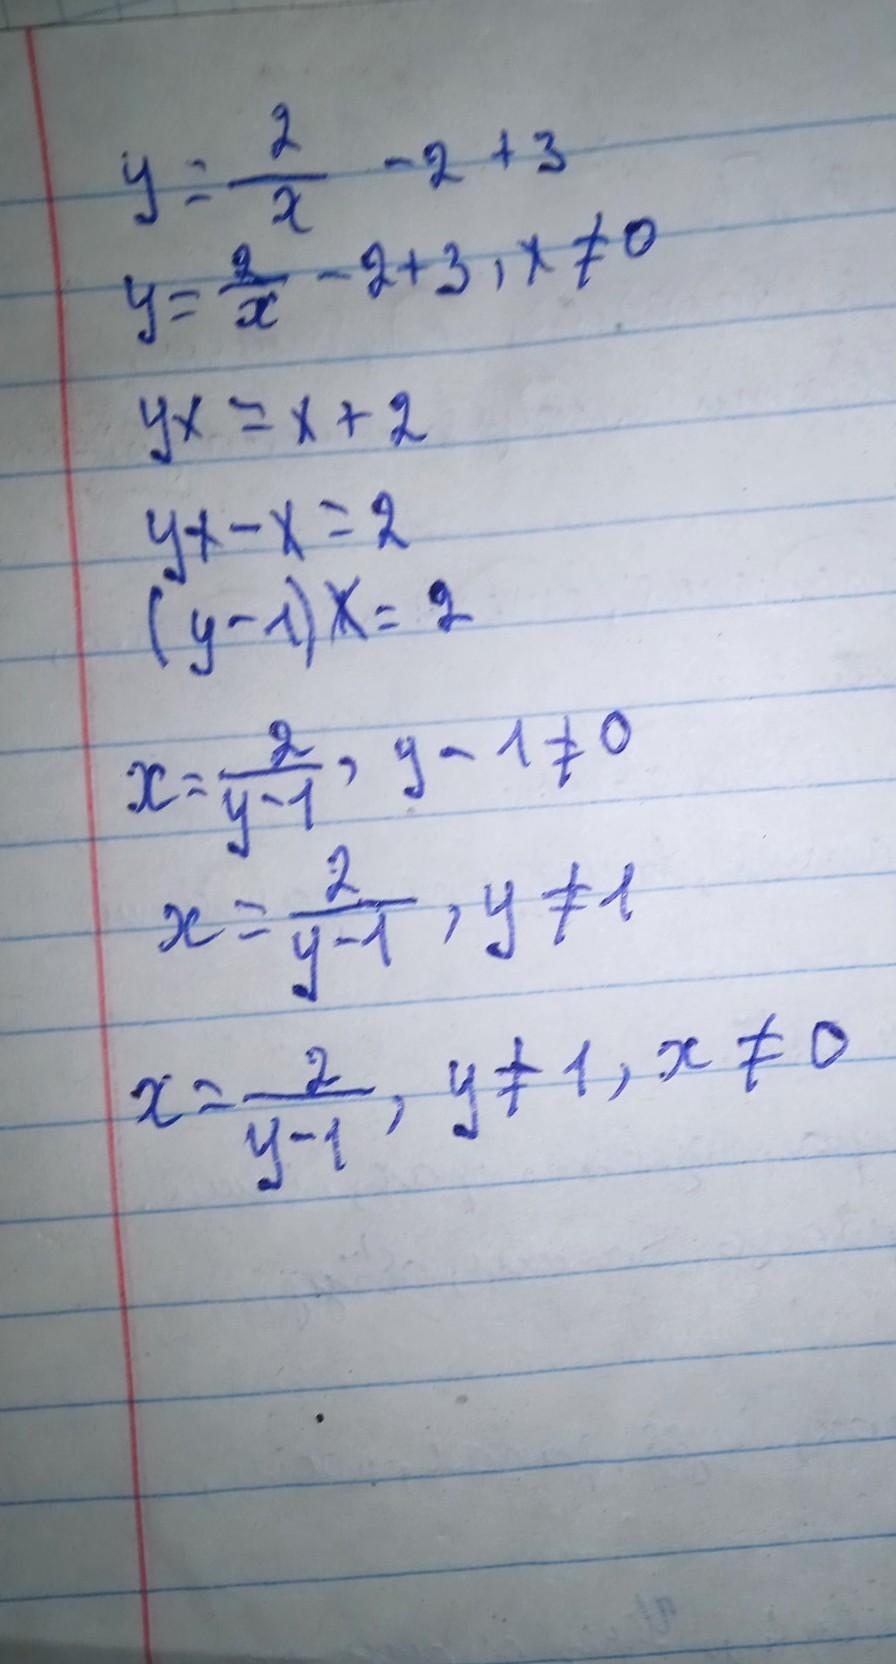 y = 2/x - 2 + 3
y = 2/x - 2 + 3, x ≠ 0
yx = x + 2
yx - x = 2
(y - 1)x = 2
x = 2/(y-1), y - 1 ≠ 0
x = 2/(y-1), y ≠ 1
x = 2/(y-1), y ≠ 1, x ≠ 0